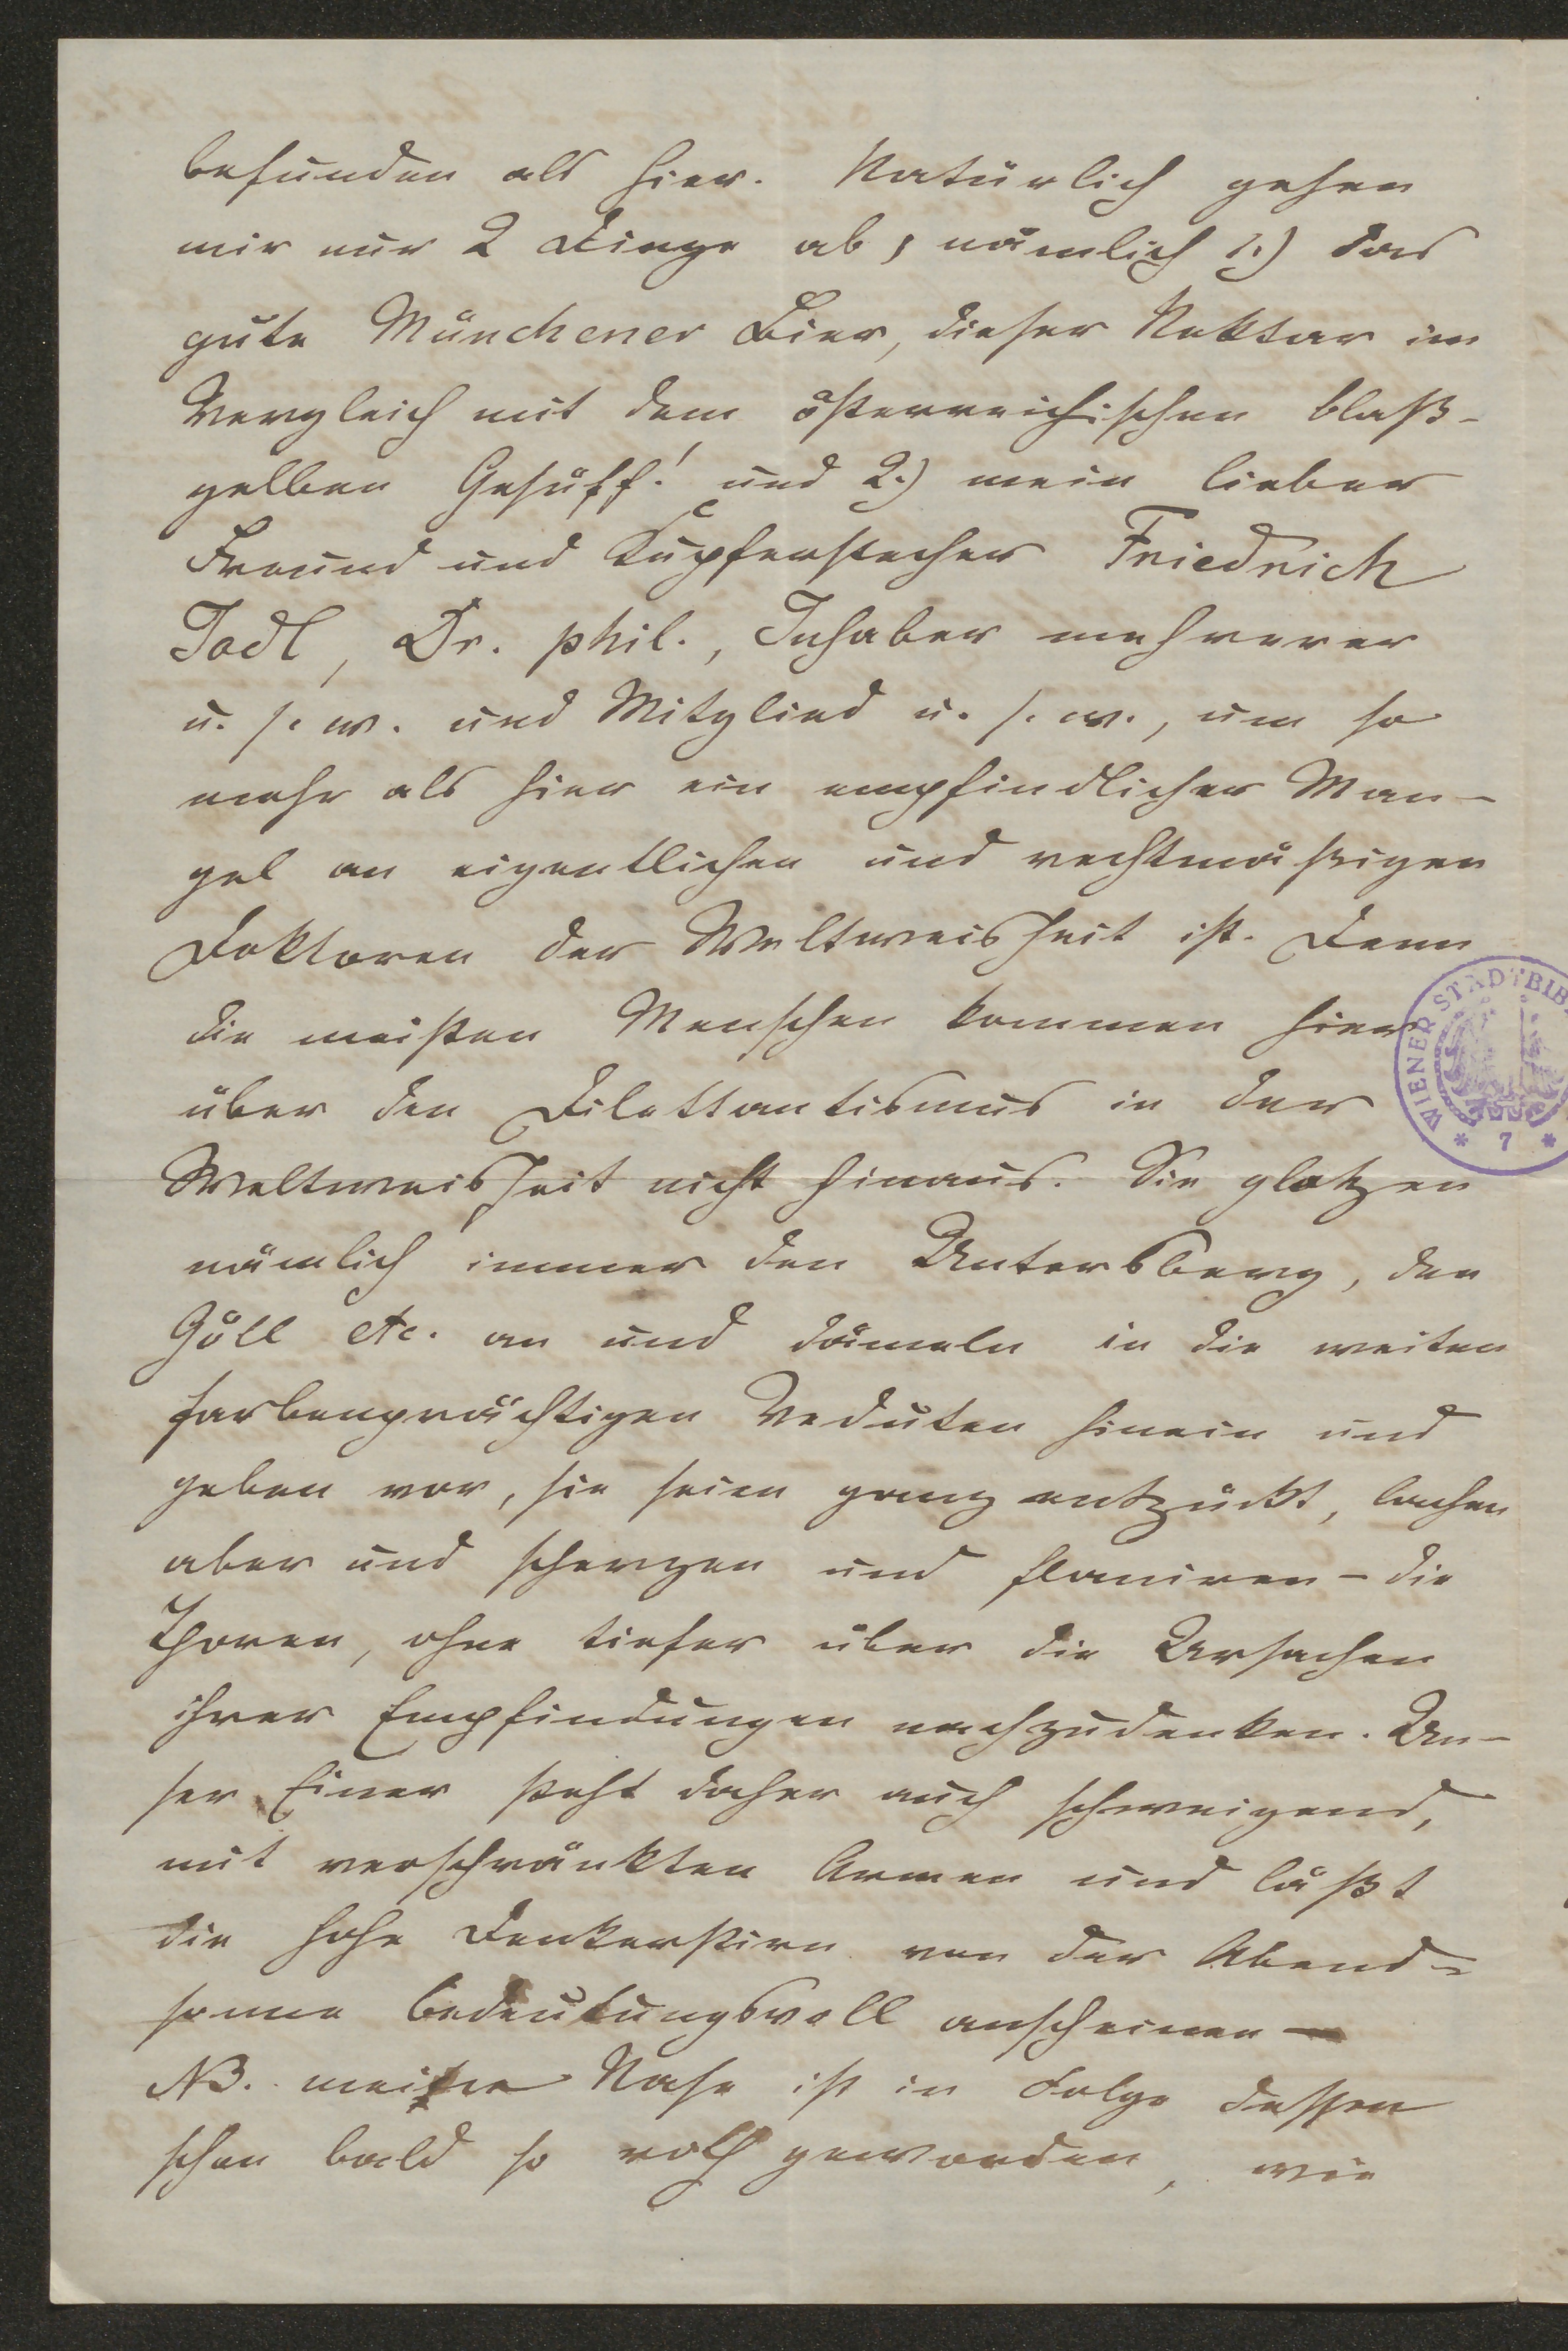 befunden als hier. Natürlich gehen
mir nur 2 Dinge ab, nämlich 1.) das
gute Münchener Bier, dieser Nektar im
Vergleich mit dem österreichischen blaß-
gelben Gesüff! und 2.) mein lieber
Freund und Kupferstecher Friedrich
Jodl, Dr. phil., Inhaber mehrerer
u. s. w. und Mitglied u. s. w., um so
mehr als hier ein empfindlicher Man-
gel an eigentlichen und rechtmäßigen
Doktoren der Weltweisheit ist. Denn
die meisten Menschen kommen hier
über den Dilettantismus in der
Weltweisheit nicht hinaus. Sie glotzen
nämlich immer den Untersberg, den
Göll etc. an und dämeln in die weiten
farbenprächtigen Veduten hinein und
geben vor, sie seien ganz entzückt, lachen
aber und scherzen und flaniren – die
Thoren, ohne tiefer über die Ursachen
ihrer Empfindungen nachzudenken. Un-
ser Einer steht daher auch schweigend,
mit verschränkten Armen und läßt
die hohe Denkerstirn von der Abend-
sonne bedeutungsvoll anscheinen –
NB. meine Nase ist in Folge dessen
schon bald so roth geworden, wie
WIENER STADTBIB
* 7 *